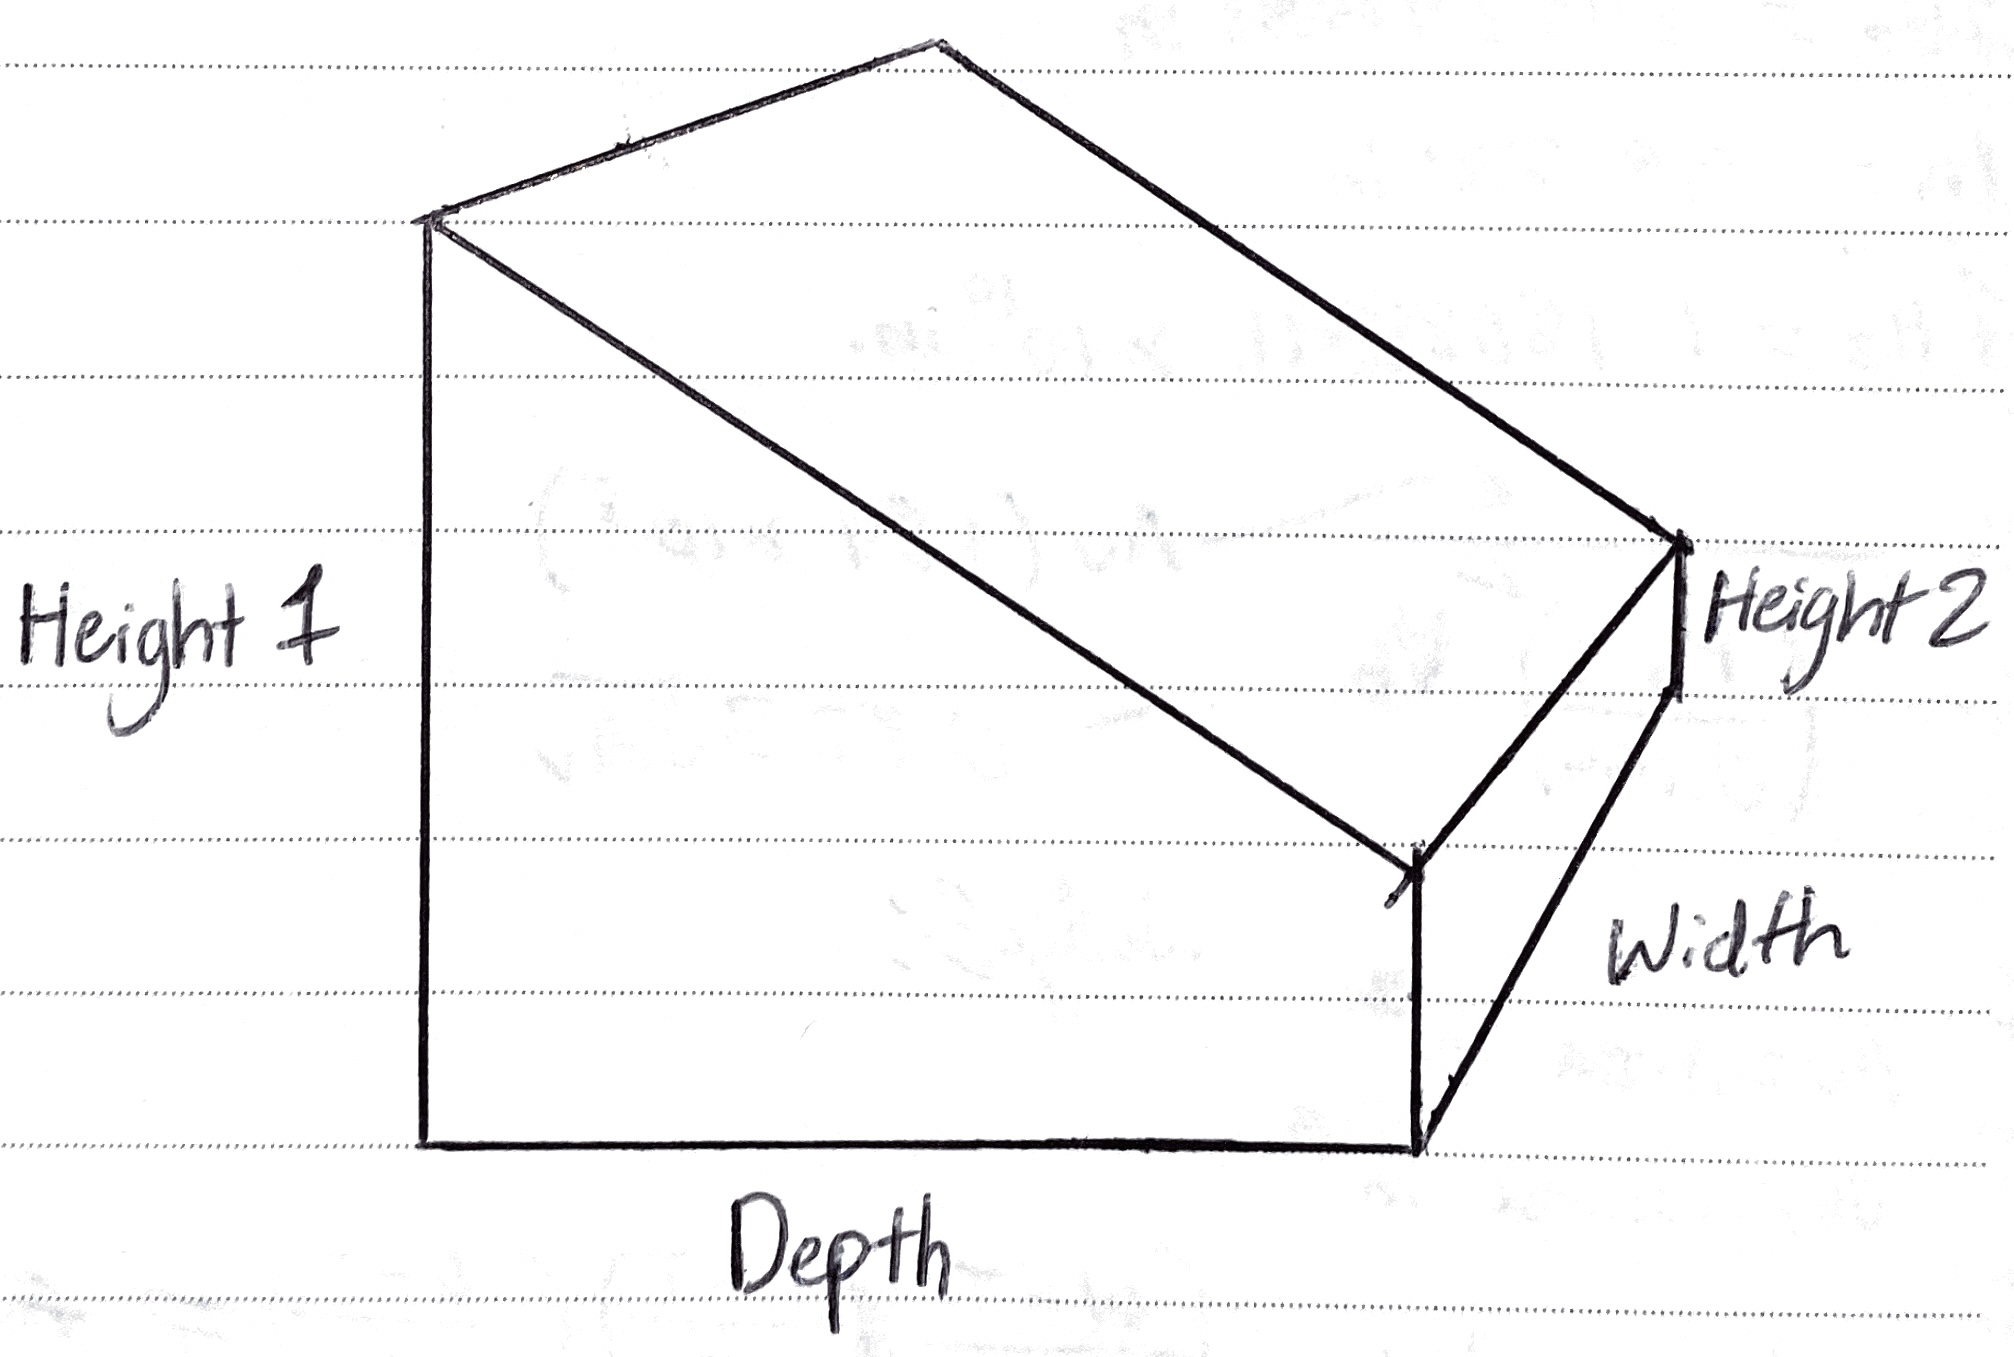 Height 1
Height 2
Width
Depth